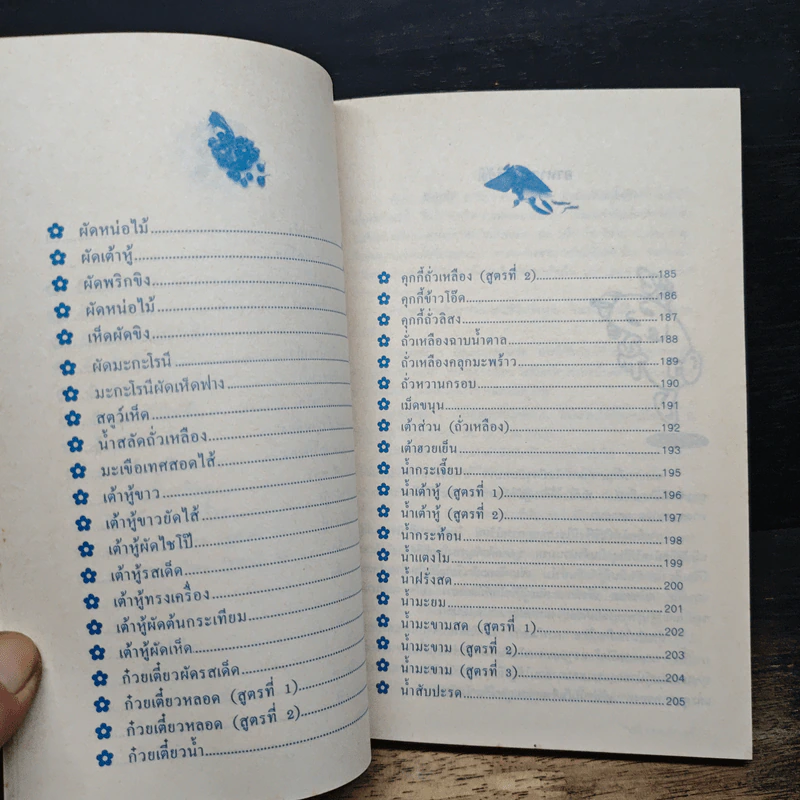 ผัดหน่อไม้
ผัดเต้าหู้
ผัดพริกขิง
ผัดหน่อไม้
เห็ดผัดขิง
ผัดมะกะโรนี
มะกะโรนีผัดเห็ดฟาง
สตูว์เห็ด
น้ำสลัดถั่วเหลือง
มะเขือเทศสอดไส้
เต้าหู้ขาว
เต้าหู้ขาวยัดไส้
เต้าหู้ผัดไชโป๊
เต้าหู้รสเด็ด
เต้าหู้ทรงเครื่อง
เต้าหู้ผัดต้นกระเทียม
เต้าหู้ผัดเห็ด
ก๋วยเตี๋ยวผัดรสเด็ด
ก๋วยเตี๋ยวหลอด (สูตรที่ 1)
ก๋วยเตี๋ยวหลอด (สูตรที่ 2)
ก๋วยเตี๋ยวน้ำ
คุกกี้ถั่วเหลือง (สูตรที่ 2) 185
คุกกี้ข้าวโอ๊ต 186
คุกกี้ถั่วลิสง 187
ถั่วเหลืองฉาบน้ำตาล 188
ถั่วเหลืองคลุกมะพร้าว 189
ถั่วหวานกรอบ 190
เม็ดขนุน 191
เต้าส่วน (ถั่วเหลือง) 192
เต้าฮวยเย็น 193
น้ำกระเจี๊ยบ 195
น้ำเต้าหู้ (สูตรที่ 1) 196
น้ำเต้าหู้ (สูตรที่ 2) 197
น้ำกระท้อน 198
น้ำแตงโม 199
น้ำฝรั่งสด 200
น้ำมะยม 201
น้ำมะขามสด (สูตรที่ 1) 202
น้ำมะขาม (สูตรที่ 2) 203
น้ำมะขาม (สูตรที่ 3) 204
น้ำสับปะรด 205